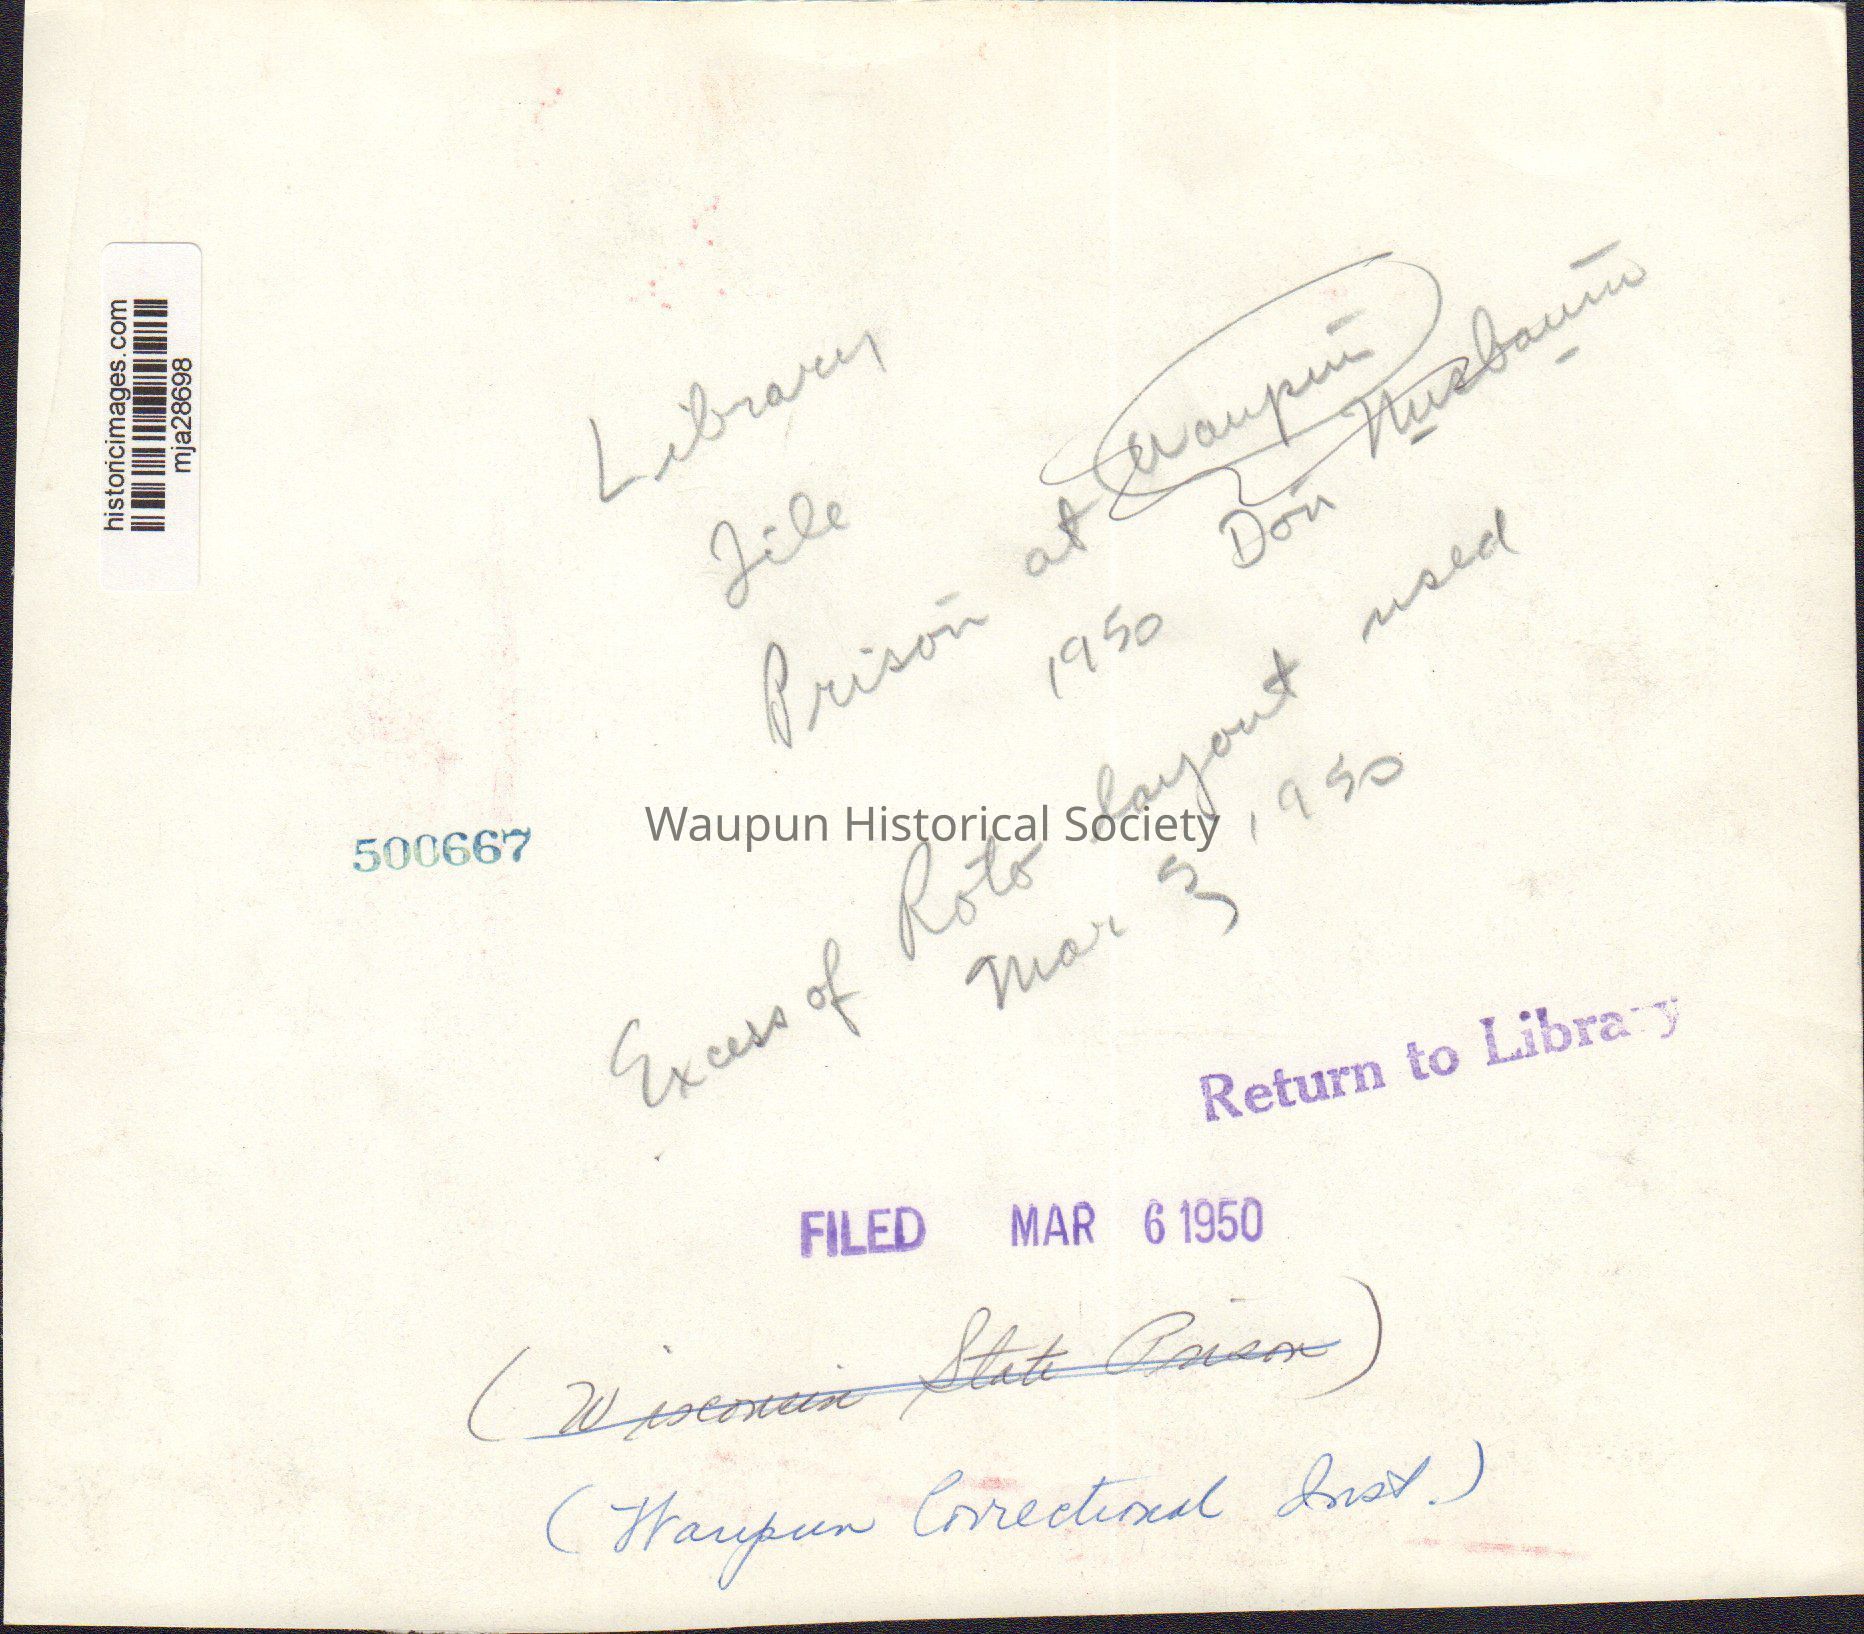 historicimages.com
mja28698
Library
File
Prison at Waupun
Don Nusbaum
1950
Excess of Roto layout used
Mar 5, 1950
500667
Waupun Historical Society
Return to Library
FILED MAR 6 1950
(Wisconsin State Prison)
(Waupun Correctional Inst.)